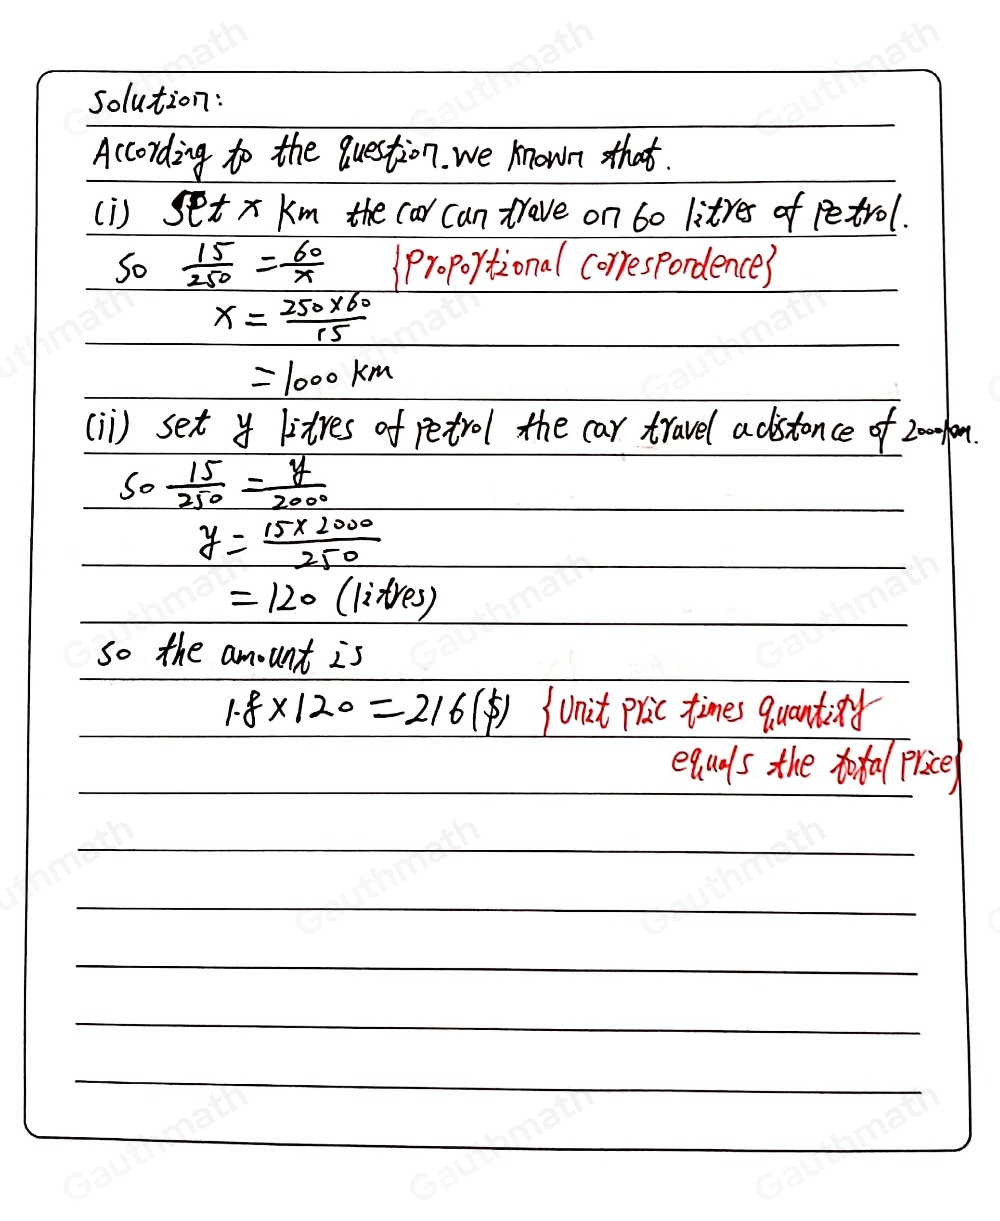 Solution:
According to the question. we known that.
(i) Set x km the car can trave on 60 litres of petrol.
So 15/250 = 60/x {Proportional correspondence}
x = 250×60/15
= 1000 km
(ii) set y litres of petrol the car travel a distance of 2000km.
So 15/250 = y/2000
y = 15×2000/250
= 120 (litres)
so the amount is
1.8×120 = 216($) {Unit pric times quantity
equals the total price}
Gauthmath